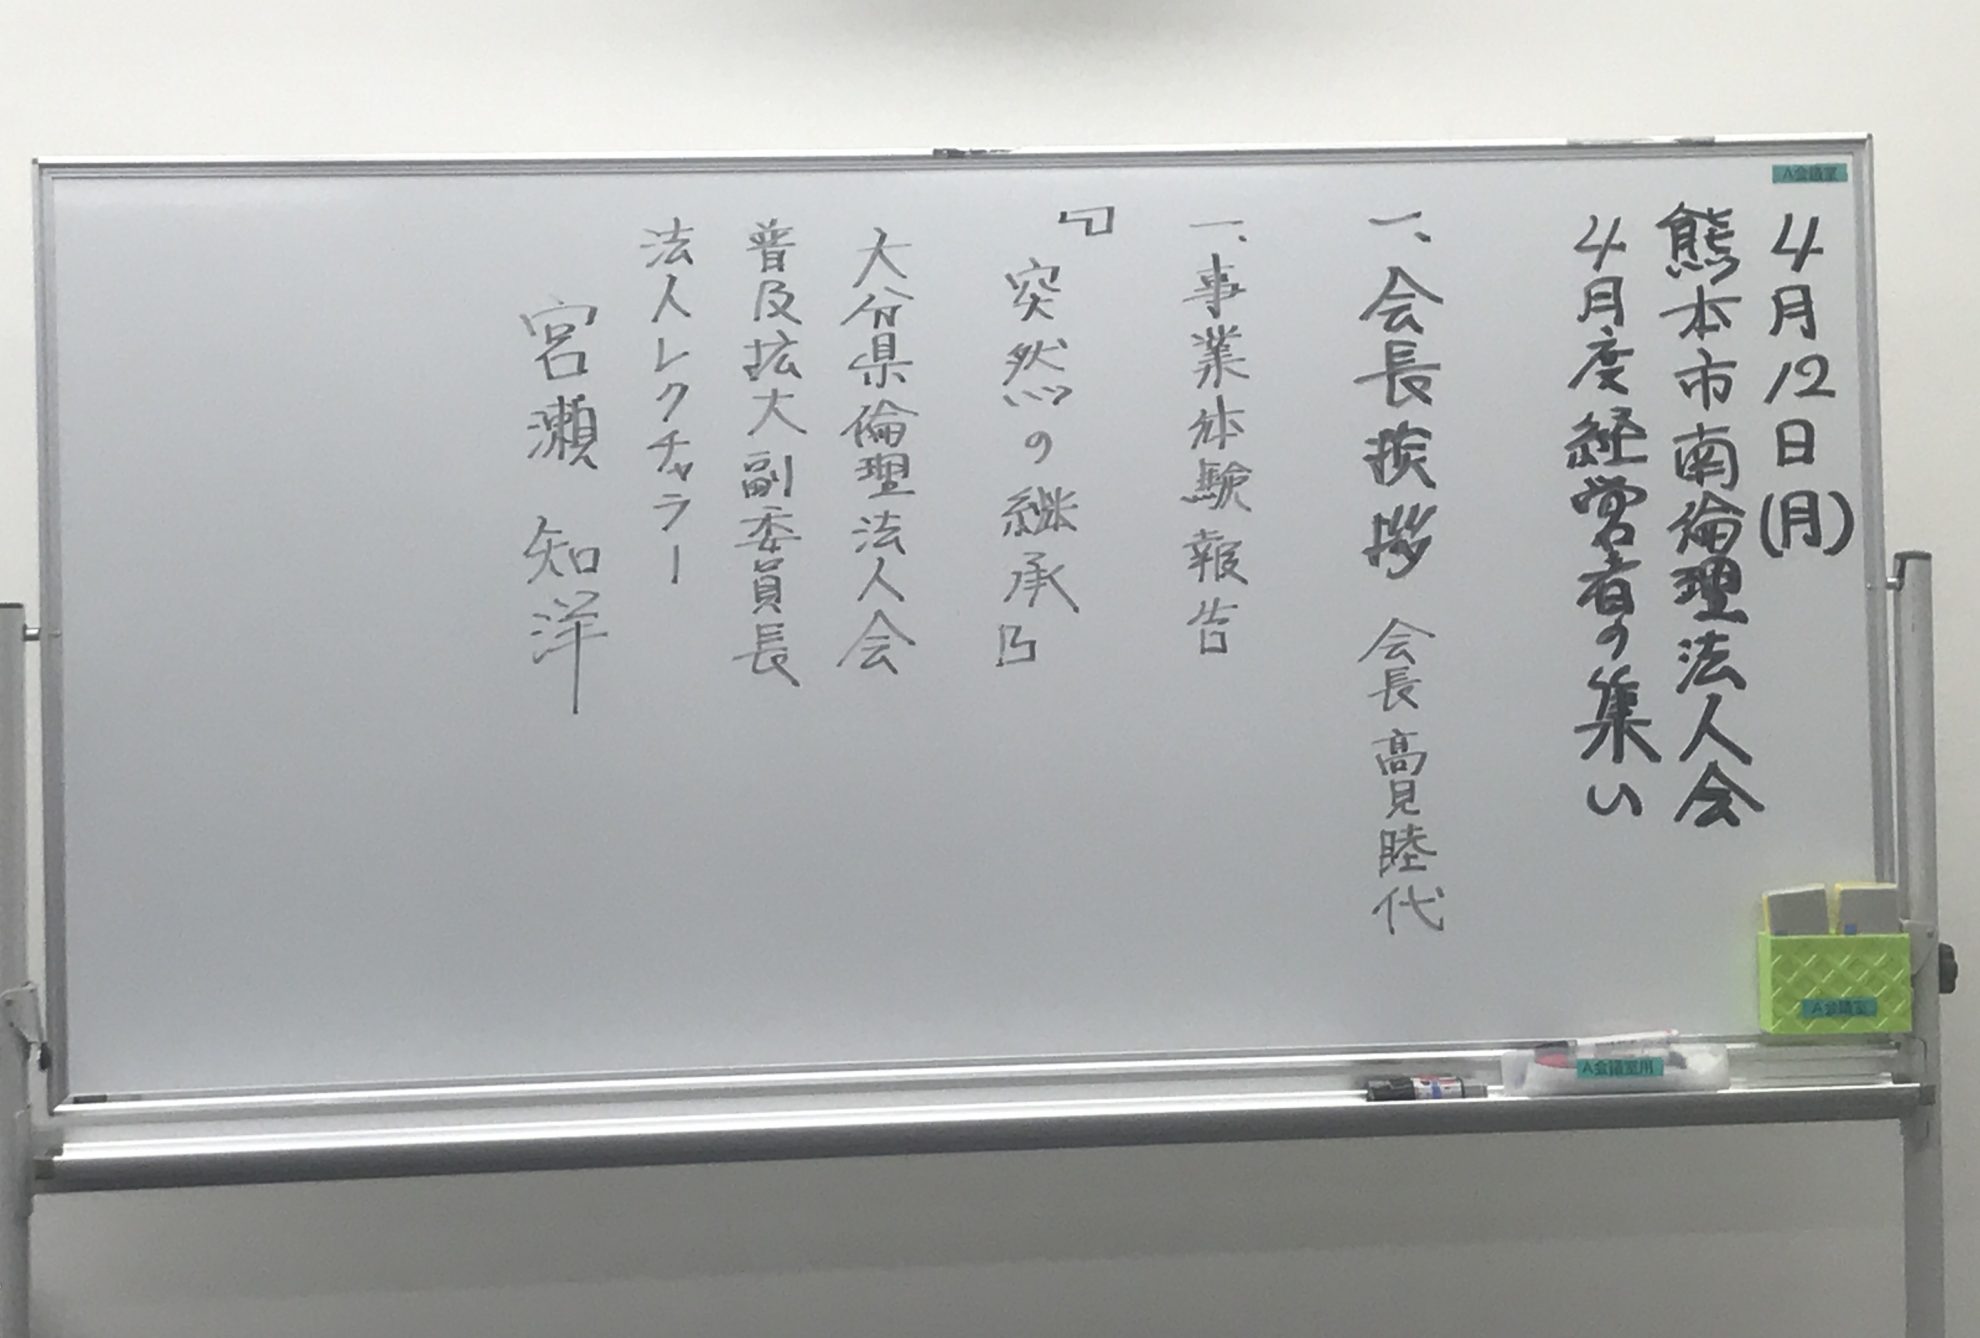 4月12日(月)
熊本市南倫理法人会
4月度経営者の集い
一、会長挨拶 会長 高見睦代
一、事業体験報告
『突然の継承』
大分県倫理法人会
普及拡大副委員長
法人レクチャラー
宮瀬 知洋
A会議室
A会議室
A会議室用